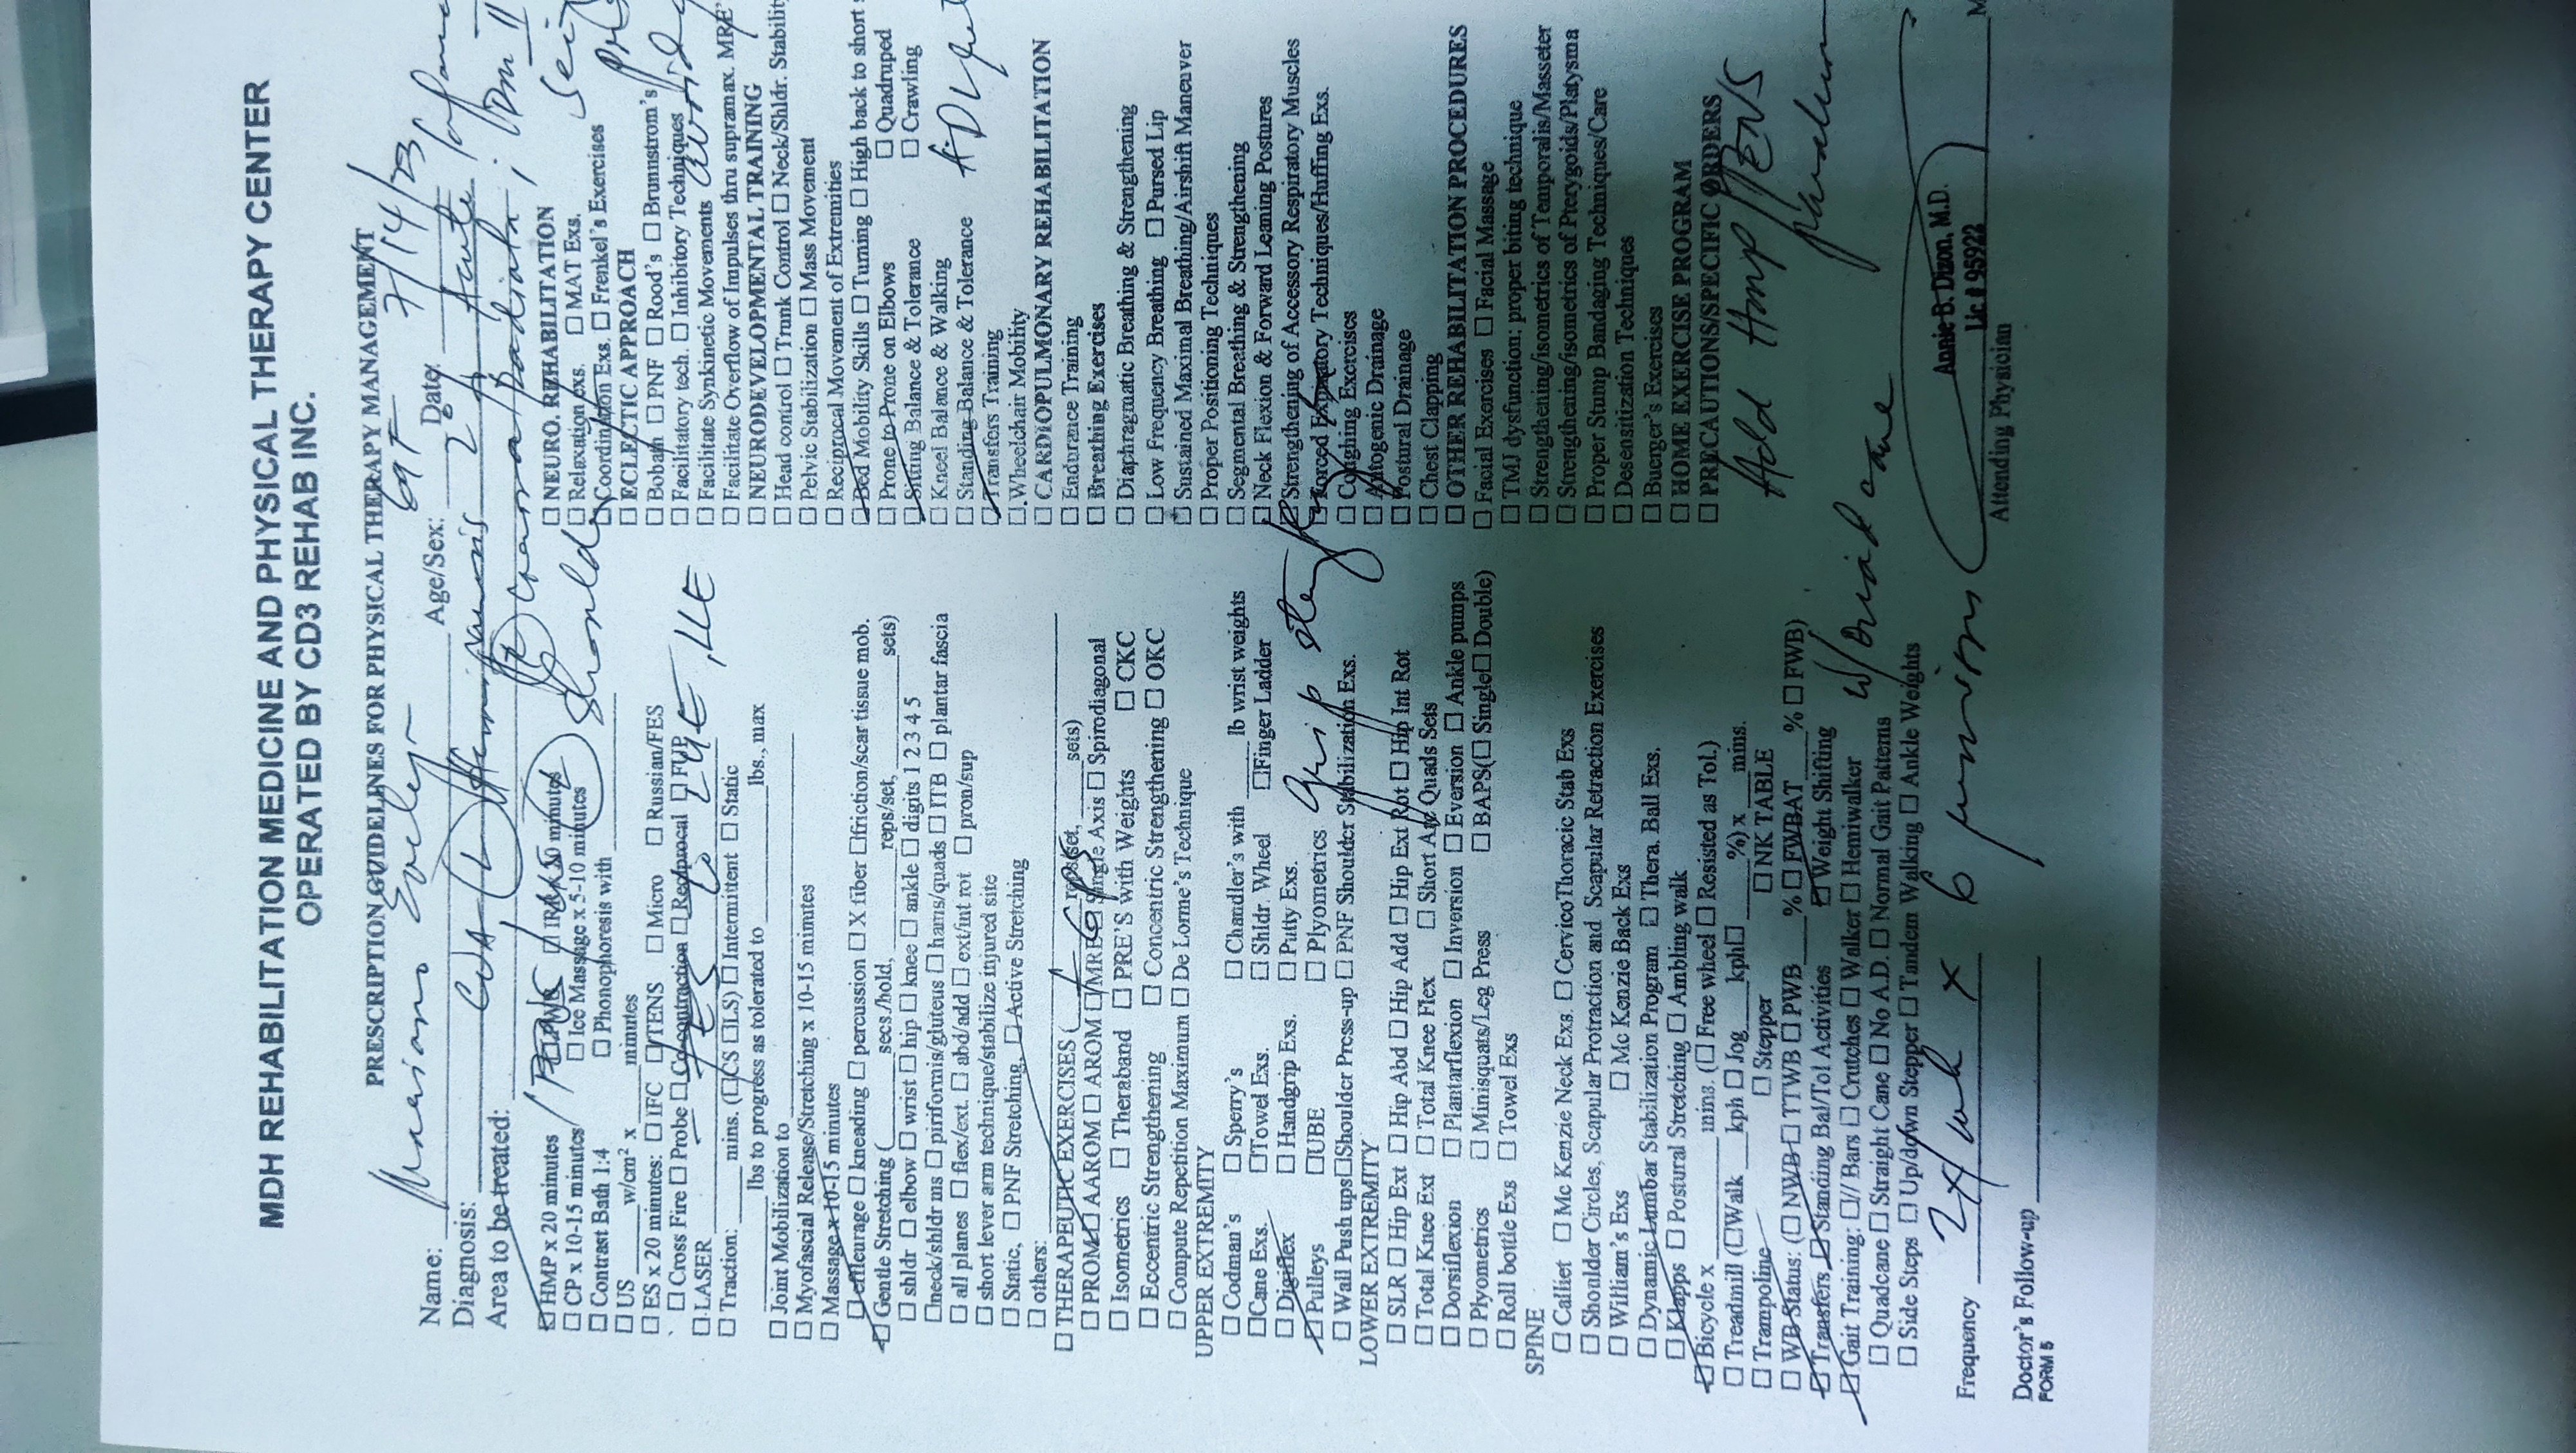 MDH REHABILITATION MEDICINE AND PHYSICAL THERAPY CENTER
OPERATED BY CD3 REHAB INC.
PRESCRIPTION GUIDELINES FOR PHYSICAL THERAPY MANAGEMENT
Name: Mariano Evelyn Age/Sex: 69F Date: 7/14/23
Diagnosis: CVA, (L) Hemiparesis 2° to Acute
Area to be treated: (R) corona radiata; Dm II
☑ HMP x 20 minutes / TENS / US (L) shoulder ☐ PWB ☐ IRR x 20 minutes
☐ CP x 10-15 minutes ☐ Ice Massage x 5-10 minutes
☐ Contrast Bath 1:4 ☐ Phonophoresis with
☐ US ____ w/cm² x ____ minutes
☐ ES x 20 minutes: ☐ IFC ☐ TENS ☐ Micro ☐ Russian/FES
☐ Cross Fire ☐ Probe ☐ Co-contraction ☐ Reciprocal ☐ FUP
- FES to LUE, LLE
☐ LASER
☐ Traction: ____ mins. (☐ CS ☐ LS) ☐ Intermittent ☐ Static
____ lbs to progress as tolerated to ____ lbs., max
☐ Joint Mobilization to
☐ Myofascial Release/Stretching x 10-15 minutes
☐ Massage x 10-15 minutes
☐ effleurage ☐ kneading ☐ percussion ☐ X fiber ☐ friction/scar tissue mob.
☑ Gentle Stretching (____ secs./hold, ____ reps/set, ____ sets)
☐ shldr ☐ elbow ☐ wrist ☐ hip ☐ knee ☐ ankle ☐ digits 1 2 3 4 5
☐ neck/shldr ms ☐ piriformis/gluteus ☐ hams/quads ☐ ITB ☐ plantar fascia
☐ all planes ☐ flex/ext. ☐ abd/add ☐ ext/int rot ☐ pron/sup
☐ short lever arm technique/stabilize injured site
☐ Static, ☐ PNF Stretching, ☐ Active Stretching
☐ others:
☐ THERAPEUTIC EXERCISES (____ reps/set, ____ sets)
☐ PROM ☑ AAROM ☐ AROM ☐ MRE ☐ Single Axis ☐ Spirodiagonal
☐ Isometrics ☐ Theraband ☐ PRE'S with Weights ☐ CKC
☐ Eccentric Strengthening ☐ Concentric Strengthening ☐ OKC
☐ Compute Repetition Maximum ☐ De Lorme's Technique
UPPER EXTREMITY
☐ Codman's ☐ Sperry's ☐ Chandler's with ____ lb wrist weights
☐ Cane Exs. ☐ Towel Exs. ☐ Shldr. Wheel ☐ Finger Ladder
☐ Digiflex ☐ Handgrip Exs. ☐ Putty Exs.
☑ Pulleys ☐ UBE ☐ Plyometrics grip
☐ Wall Push ups ☐ Shoulder Press-up ☐ PNF Shoulder Stabilization Exs.
LOWER EXTREMITY
☐ SLR ☐ Hip Ext ☐ Hip Abd ☐ Hip Add ☐ Hip Ext Rot ☐ Hip Int Rot
☐ Total Knee Ext ☐ Total Knee Flex ☐ Short Arc Quads Sets
☐ Dorsiflexion ☐ Plantarflexion ☐ Inversion ☐ Eversion ☐ Ankle pumps
☐ Plyometrics ☐ Minisquats/Leg Press ☐ BAPS(☐ Single ☐ Double)
☐ Roll bottle Exs ☐ Towel Exs
SPINE
☐ Calliet ☐ Mc Kenzie Neck Exs. ☐ CervicoThoracic Stab Exs
☐ Shoulder Circles, Scapular Protraction and Scapular Retraction Exercises
☐ William's Exs ☐ Mc Kenzie Back Exs
☐ Dynamic Lumbar Stabilization Program ☐ Thera. Ball Exs.
☐ Klapps ☐ Postural Stretching ☐ Ambling walk
☑ Bicycle x ____ mins. (☐ Free wheel ☐ Resisted as Tol.)
☐ Treadmill (☐ Walk ___ kph ☐ Jog ___ kph ☐ ___ %) x ___ mins.
☐ Trampoline ☐ Stepper ☐ NK TABLE
☐ WB Status: (☐ NWB ☐ TTWB ☐ PWB ___ % ☐ FWBAT ___ % ☐ FWB)
☑ Transfers ☑ Standing Bal/Tol Activities ☑ Weight Shifting
☑ Gait Training: ☐ // Bars ☐ Crutches ☐ Walker ☐ Hemiwalker w/ quad cane
☐ Quadcane ☐ Straight Cane ☐ No A.D. ☐ Normal Gait Patterns
☐ Side Steps ☐ Up/down Stepper ☐ Tandem Walking ☐ Ankle Weights
Frequency 2x/wk x 6 sessions
Doctor's Follow-up
FORM 5
☐ NEURO. REHABILITATION
☐ Relaxation exs. ☐ MAT Exs.
☐ Coordination Exs. ☐ Frenkel's Exercises
☐ ECLECTIC APPROACH
☐ Bobath ☐ PNF ☐ Rood's ☐ Brunnstrom's
☐ Facilitatory tech. ☐ Inhibitory Techniques
☐ Facilitate Synkinetic Movements avoid
☐ Facilitate Overflow of Impulses thru supramax. MRE'
☐ NEURODEVELOPMENTAL TRAINING
☐ Head control ☐ Trunk Control ☐ Neck/Shldr. Stabilit
☐ Pelvic Stabilization ☐ Mass Movement
☐ Reciprocal Movement of Extremities
☑ Bed Mobility Skills ☐ Turning ☐ High back to short
☐ Prone to Prone on Elbows ☐ Quadruped
☑ Sitting Balance & Tolerance ☐ Crawling
☐ Kneel Balance & Walking
☐ Standing Balance & Tolerance
☑ Transfers Training
☐ Wheelchair Mobility
☐ CARDIOPULMONARY REHABILITATION
☐ Endurance Training
☐ Breathing Exercises
☐ Diaphragmatic Breathing & Strengthening
☐ Low Frequency Breathing ☐ Pursed Lip
☐ Sustained Maximal Breathing/Airshift Maneuver
☐ Proper Positioning Techniques
☐ Segmental Breathing & Strengthening
☐ Neck Flexion & Forward Leaning Postures
☐ Strengthening of Accessory Respiratory Muscles
☐ Forced Expiratory Techniques/Huffing Exs.
☐ Coughing Exercises
☐ Autogenic Drainage
☐ Postural Drainage
☐ Chest Clapping
☐ OTHER REHABILITATION PROCEDURES
☐ Facial Exercises ☐ Facial Massage
☐ TMJ dysfunction: proper biting technique
☐ Strengthening/isometrics of Temporalis/Masseter
☐ Strengthening/isometrics of Pterygoids/Platysma
☐ Proper Stump Bandaging Techniques/Care
☐ Desensitization Techniques
☐ Buerger's Exercises
☐ HOME EXERCISE PROGRAM
☐ PRECAUTIONS/SPECIFIC ORDERS
Add Hmp/TENS
Annie B. Dizon, M.D.
Lic # 95922
Attending Physician